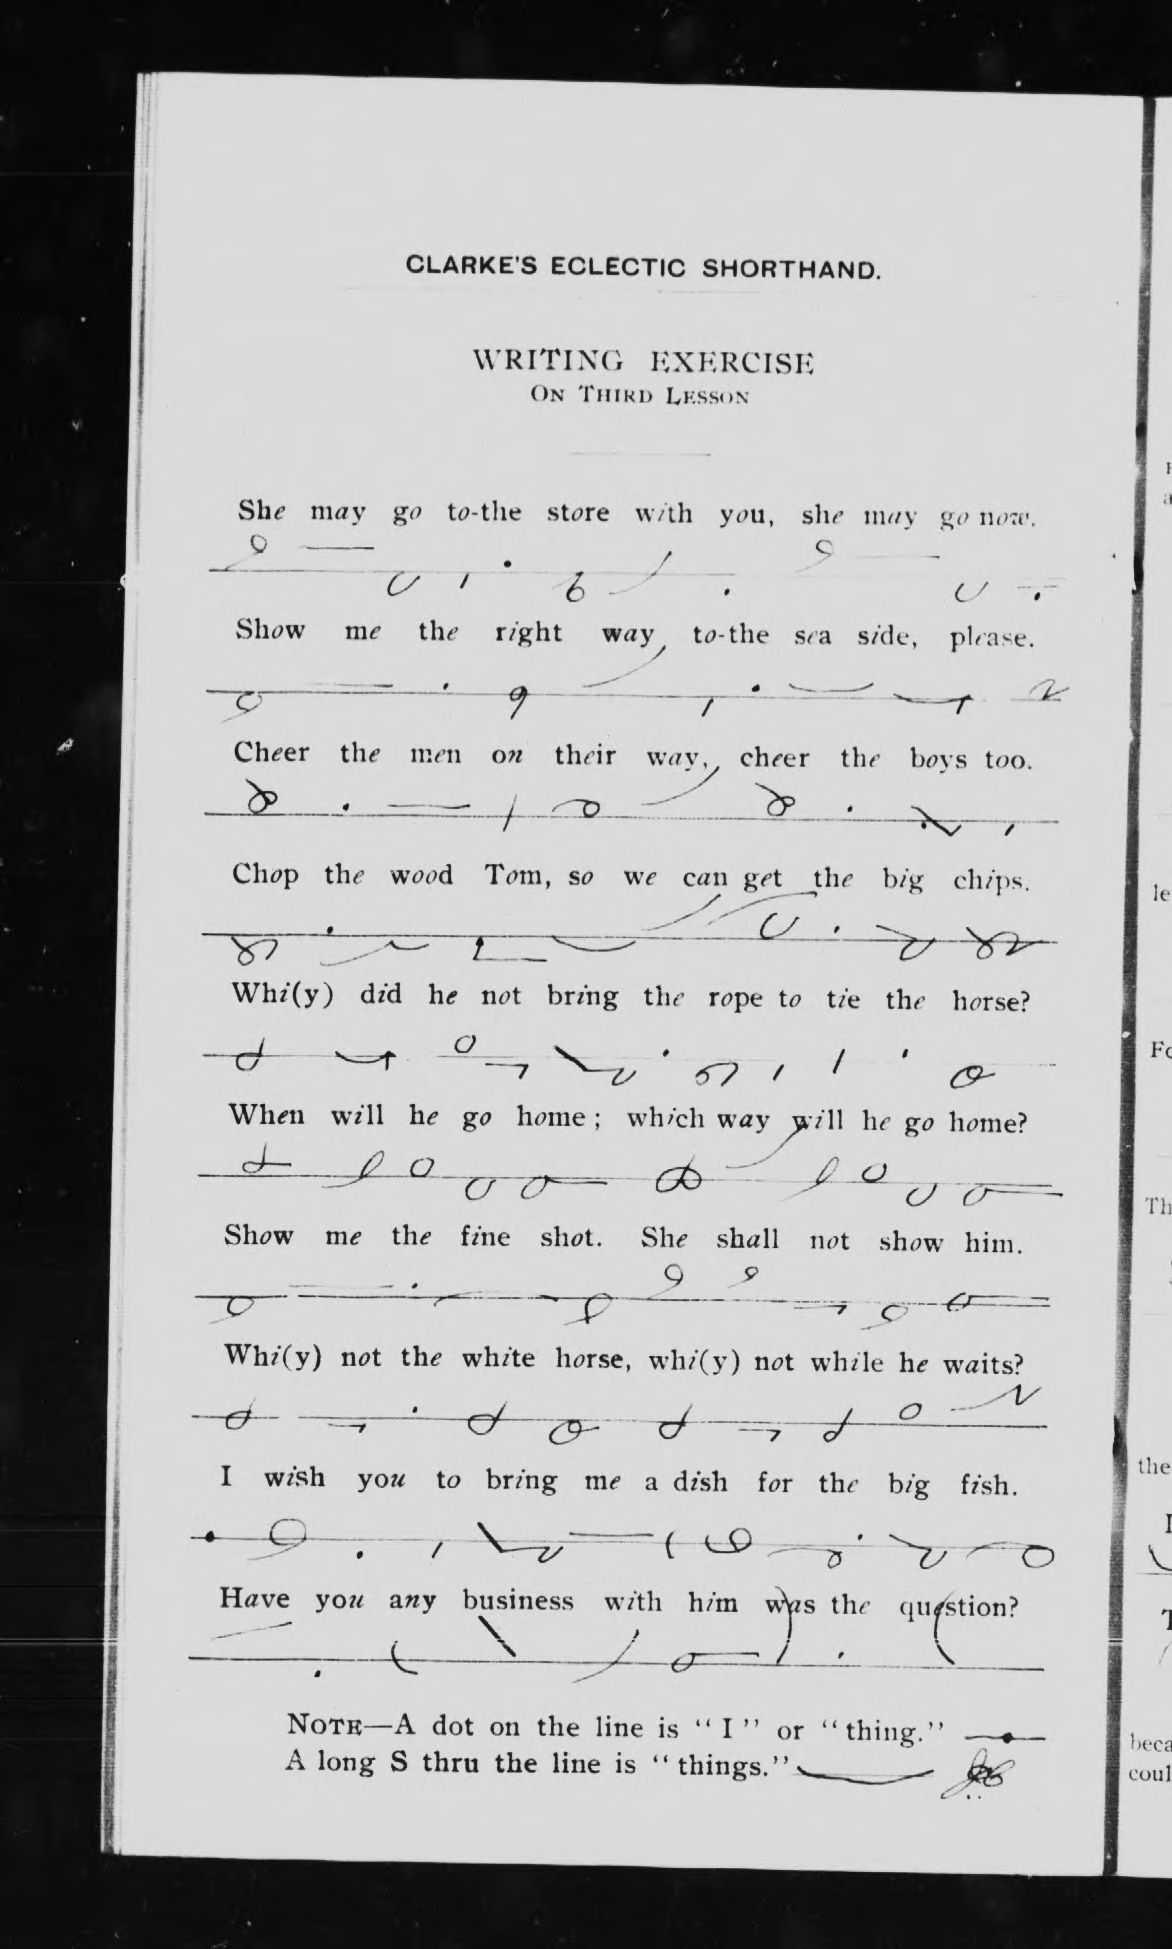 CLARKE'S ECLECTIC SHORTHAND.
WRITING EXERCISE
ON THIRD LESSON
She may go to-the store with you, she may go now.
Show me the right way, to-the sea side, please.
Cheer the men on their way, cheer the boys too.
Chop the wood Tom, so we can get the big chips.
Whi(y) did he not bring the rope to tie the horse?
When will he go home; which way will he go home?
Show me the fine shot. She shall not show him.
Whi(y) not the white horse, whi(y) not while he waits?
I wish you to bring me a dish for the big fish.
Have you any business with him was the question?
NOTE—A dot on the line is "I" or "thing."
A long S thru the line is "things."